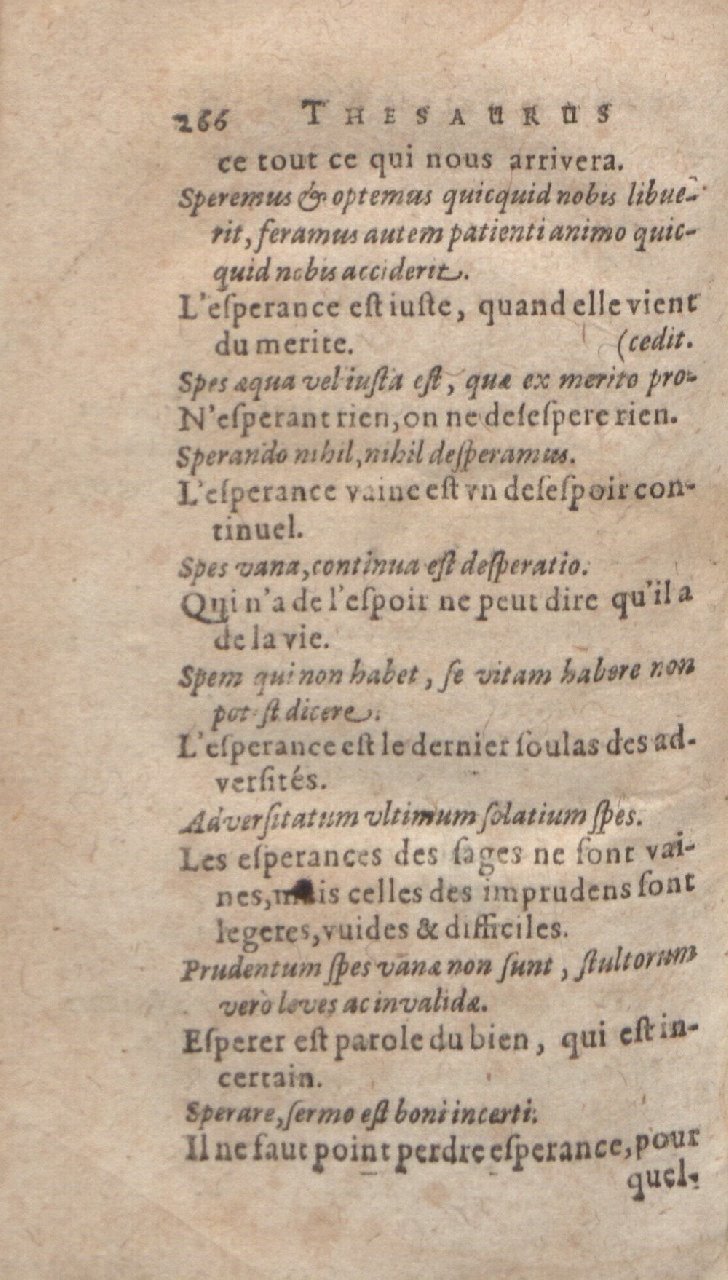 266 THESAURUS
ce tout ce qui nous arrivera.
Speremus & optemus quicquid nobis libue-
rit, feramus autem patienti animo quic-
quid nobis acciderit.
L'eſperance eſt iuſte, quand elle vient
du merite. (cedit.
Spes æqua vel iuſta eſt, quæ ex merito pro-
N'eſperant rien, on ne deſeſpere rien.
Sperando nihil, nihil deſperamus.
L'eſperance vaine eſt vn deſeſpoir con-
tinuel.
Spes vana, continua eſt deſperatio.
Qui n'a de l'eſpoir ne peut dire qu'il a
de la vie.
Spem qui non habet, ſe vitam habere non
pot ſt dicere.
L'eſperance eſt le dernier ſoulas des ad-
verſités.
Adverſitatum vltimum ſolatium ſpes.
Les eſperances des ſages ne ſont vai-
nes, mais celles des imprudens ſont
legeres, vuides & difficiles.
Prudentum ſpes vanæ non ſunt, ſtultorum
verò leves ac invalidæ.
Eſperer eſt parole du bien, qui eſt in-
certain.
Sperare, ſermo eſt boni incerti.
Il ne faut point perdre eſperance, pour
quel-